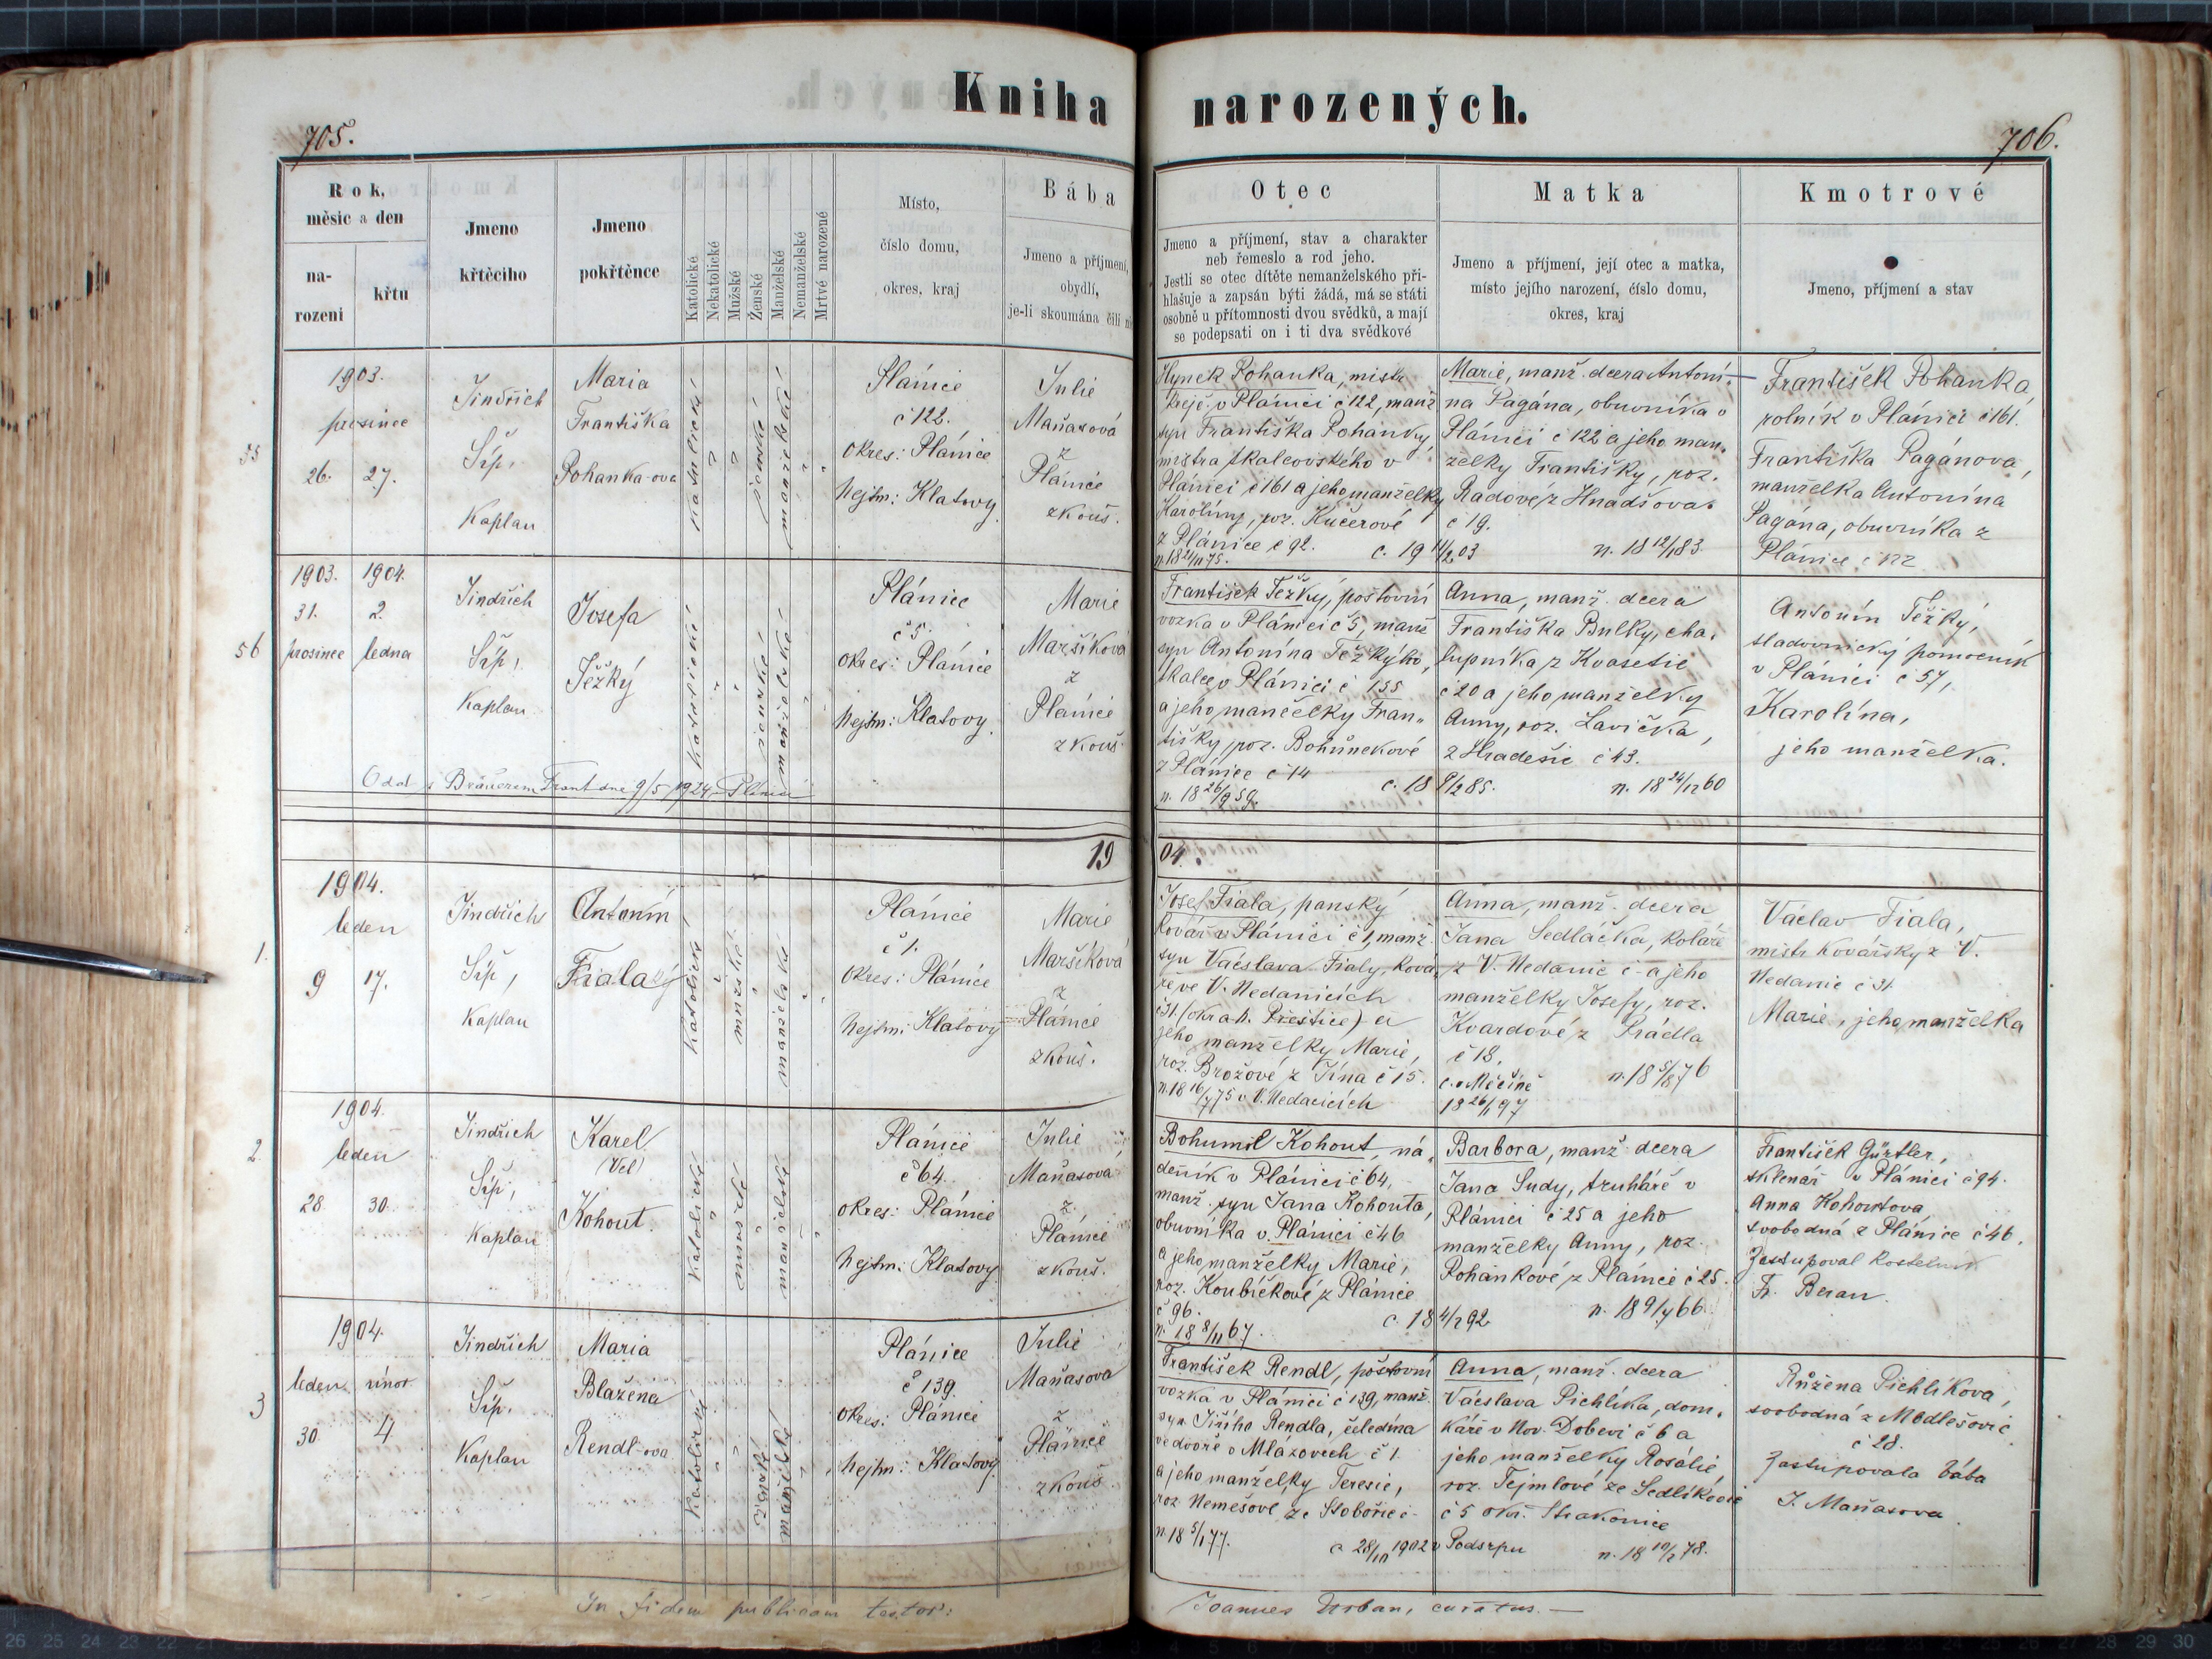 Kniha narozených.
705.
706.
Rok, měsíc a den
na-
rození
křtu
Jmeno
křtícího
Jmeno
pokřtěnce
Katolické
Nekatolické
Mužské
Ženské
Manželské
Nemanželské
Mrtvě narozené
Místo,
číslo domu,
okres, kraj
Bába
Jmeno a příjmení,
obydlí,
je-li zkoumána čili
Otec
Jmeno a příjmení, stav a charakter
neb řemeslo a rod jeho.
Jestli se otec dítěte nemanželského při-
hlašuje a zapsán býti žádá, má se státi
osobně u přítomnosti dvou svědků, a mají
se podepsati on i ti dva svědkové
Matka
Jmeno a příjmení, její otec a matka,
místo jejího narození, číslo domu,
okres, kraj
Kmotrové
Jmeno, příjmení a stav
55
1903.
prosinec
26. 27.
Jindřich
Síp,
Kaplan
Maria
Františka
Pohanka-ova
katolické
ženské
manželské
Plánice
č 122.
Okres: Plánice
Hejtm: Klatovy.
Julie
Maňasová
z
Plánice
zkouš.
Hynek Pohanka, mistr
krejč. v Plánici č 122, manž
syn Františka Pohanky,
mistra tkalcovského v
Plánici č 161 a jeho manželky
Karoliny, roz. Kučerové
z Plánice č 92.
c. 19 11/2 03
Marie, manž. dcera Antoní-
na Pagána, obuvníka v
Plánici č 122 a jeho man-
želky Františky, roz.
Radové z Hnadšova
č 19.
n. 18 12/1 83.
František Pohanka
rolník v Plánici č 161.
Františka Pagánova,
manželka Antonína
Pagána, obuvníka z
Plánice č 122
56
1903. 1904.
31. 2.
prosince ledna
Jindřich
Síp,
Kaplan.
Josefa
Těžký
katolické
ženské
manželské
Plánice
č 5.
Okres: Plánice
Hejtm: Klatovy.
Marie
Maršíková
z
Plánice
zkouš.
František Těžký, poštovní
vozka v Plánici č 5, manž
syn Antonína Těžkýho,
tkalce v Plánici č 155
a jeho manželky Fran-
tišky, roz. Bohůnekové
z Plánice č 14
n. 18 26/9 59.
c. 18 9/2 85.
Anna, manž. dcera
Františka Bulky, cha-
lupníka z Kvasetic
č 20 a jeho manželky
Anny, roz. Lavička,
z Hradešic č 43.
n. 18 24/12 60
Antonín Těžký,
sladovnický pomocník
v Plánici č 57,
Karolína,
jeho manželka.
Odd. s Frant dne 9/5 1924 v Plánici
1904.
1.
1904.
leden
9 17.
Jindřich
Síp,
Kaplan
Antonín
Fiala
katolické
mužské
manželské
Plánice
č 1.
Okres: Plánice
Hejtm: Klatovy
Marie
Maršíková
z
Plánice
zkouš.
Josef Fiala, panský
kovář v Plánici č 1, manž.
syn Václava Fialy, ková-
ře ve V. Nedanicích
č 31. (okr. h. Přeštice) a
jeho manželky Marie,
roz. Brožové z Týna č 15.
n. 18 16/7 75 v V. Nedanicích
Anna, manž. dcera
Jana Sedláčka, koláře
z V. Nedanic č - a jeho
manželky Josefy, roz.
Kvardové z Prádla
č 18.
c. v Měčíně
18 26/1 97
n. 18 5/8 76
Václav Fiala,
mistr kovářský z V.
Nedanic č 31
Marie, jeho manželka
2
1904.
leden
28. 30.
Jindřich
Síp,
Kaplan
Karel
(Vel)
Kohout.
katolické
mužské
manželské
Plánice
č 64.
Okres: Plánice
Hejtm: Klatovy
Julie
Maňasová
z
Plánice
zkouš.
Bohumil Kohout, ná-
deník v Plánici č 64,
manž. syn Jana Kohouta,
obuvníka v Plánici č 46
a jeho manželky Marie,
roz. Koubíčkové z Plánice
č 96.
n. 18 8/11 67.
c. 18 4/2 92
Barbora, manž. dcera
Jana Sudy, truhláře v
Plánici č 25 a jeho
manželky Anny, roz.
Pohankové z Plánice č 25.
František Gürtler,
sklenář v Plánici č 94.
Anna Kohoutova
svobodná z Plánice č 46.
Zastupoval kostelník
Fr. Beran.
3
1904.
leden únor
30. 4.
Jindřich
Síp.
Kaplan
Maria
Blažena
Rendl-ova
katolické
ženské
manželské
Plánice
č 139.
Okres: Plánice
Hejtm: Klatovy
Julie
Maňasova
z
Plánice
zkouš.
František Rendl, poštovní
vozka v Plánici č 139, manž.
syn Jiřího Rendla, čeledína
ve dvoře v Mlázovech č 1
a jeho manželky Terezie,
roz. Nemešové ze Sobošic č -
n. 18 5/1 77.
c 28/10 1902 v Podsrpu
Anna, manž. dcera
Václava Pichlíka, dom-
káře v Nov. Dobevi č 6 a
jeho manželky Rosálie
roz. Tejmlové ze Sedlíkovic
č 5 okr. Strakonice
n. 18 10/2 78.
Růžena Pichlíkova,
svobodná z Modlešovic
č 28.
Zastupovala bába
J. Maňasova.
In fidem publicam testor:
Joannes Urban, curatus.